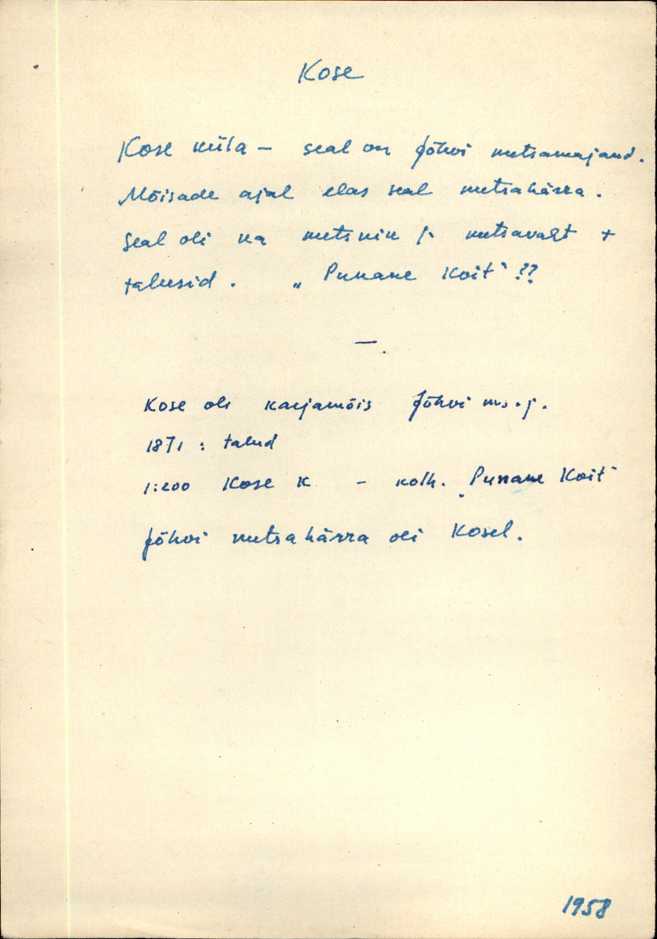 Kose
Kose küla – seal on Jõhvi metsamajand.
Mõisade ajal elas seal metsahärra.
Seal oli ka metsnik ja metsavaht +
talusid. „Punane Koit“??
—
Kose oli karjamõis Jõhvi ms.j.
1871: talud
1:200 Kose k – kolh. „Punane Koit“
Jõhvi metsahärra oli Kosel.
1958